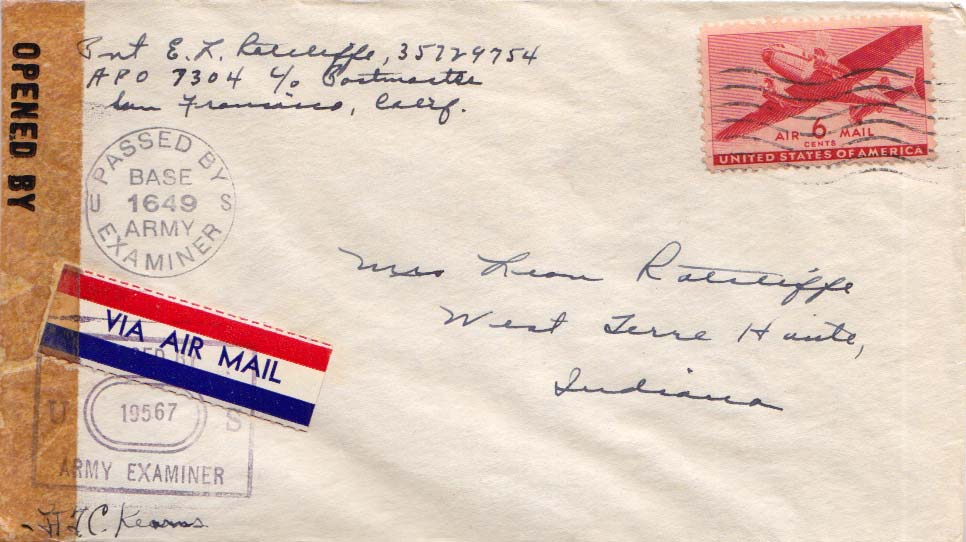 OPENED BY
Pvt E. L. Ratcliffe, 35729754
APO 7304 c/o Postmaster
San Francisco, Calif.
AIR 6 MAIL
CENTS
UNITED STATES OF AMERICA
PASSED BY
BASE
U 1649 S
ARMY
EXAMINER
Mrs Leon Ratcliffe
West Terre Haute,
Indiana
VIA AIR MAIL
U 19567 S
ARMY EXAMINER
Kearns